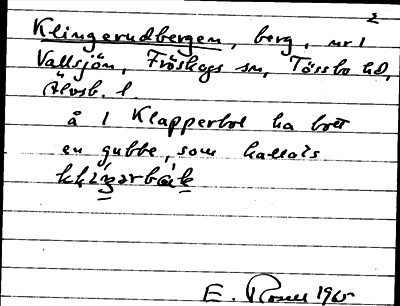 2
Klingerudbergen, berg, nr 1
Vallsjön, Fröskogs sn, Tössbo hd,
Älvsb. l
å 1 Klapperbol ha bott
en gubbe, som kallats
E. Rosell 1965